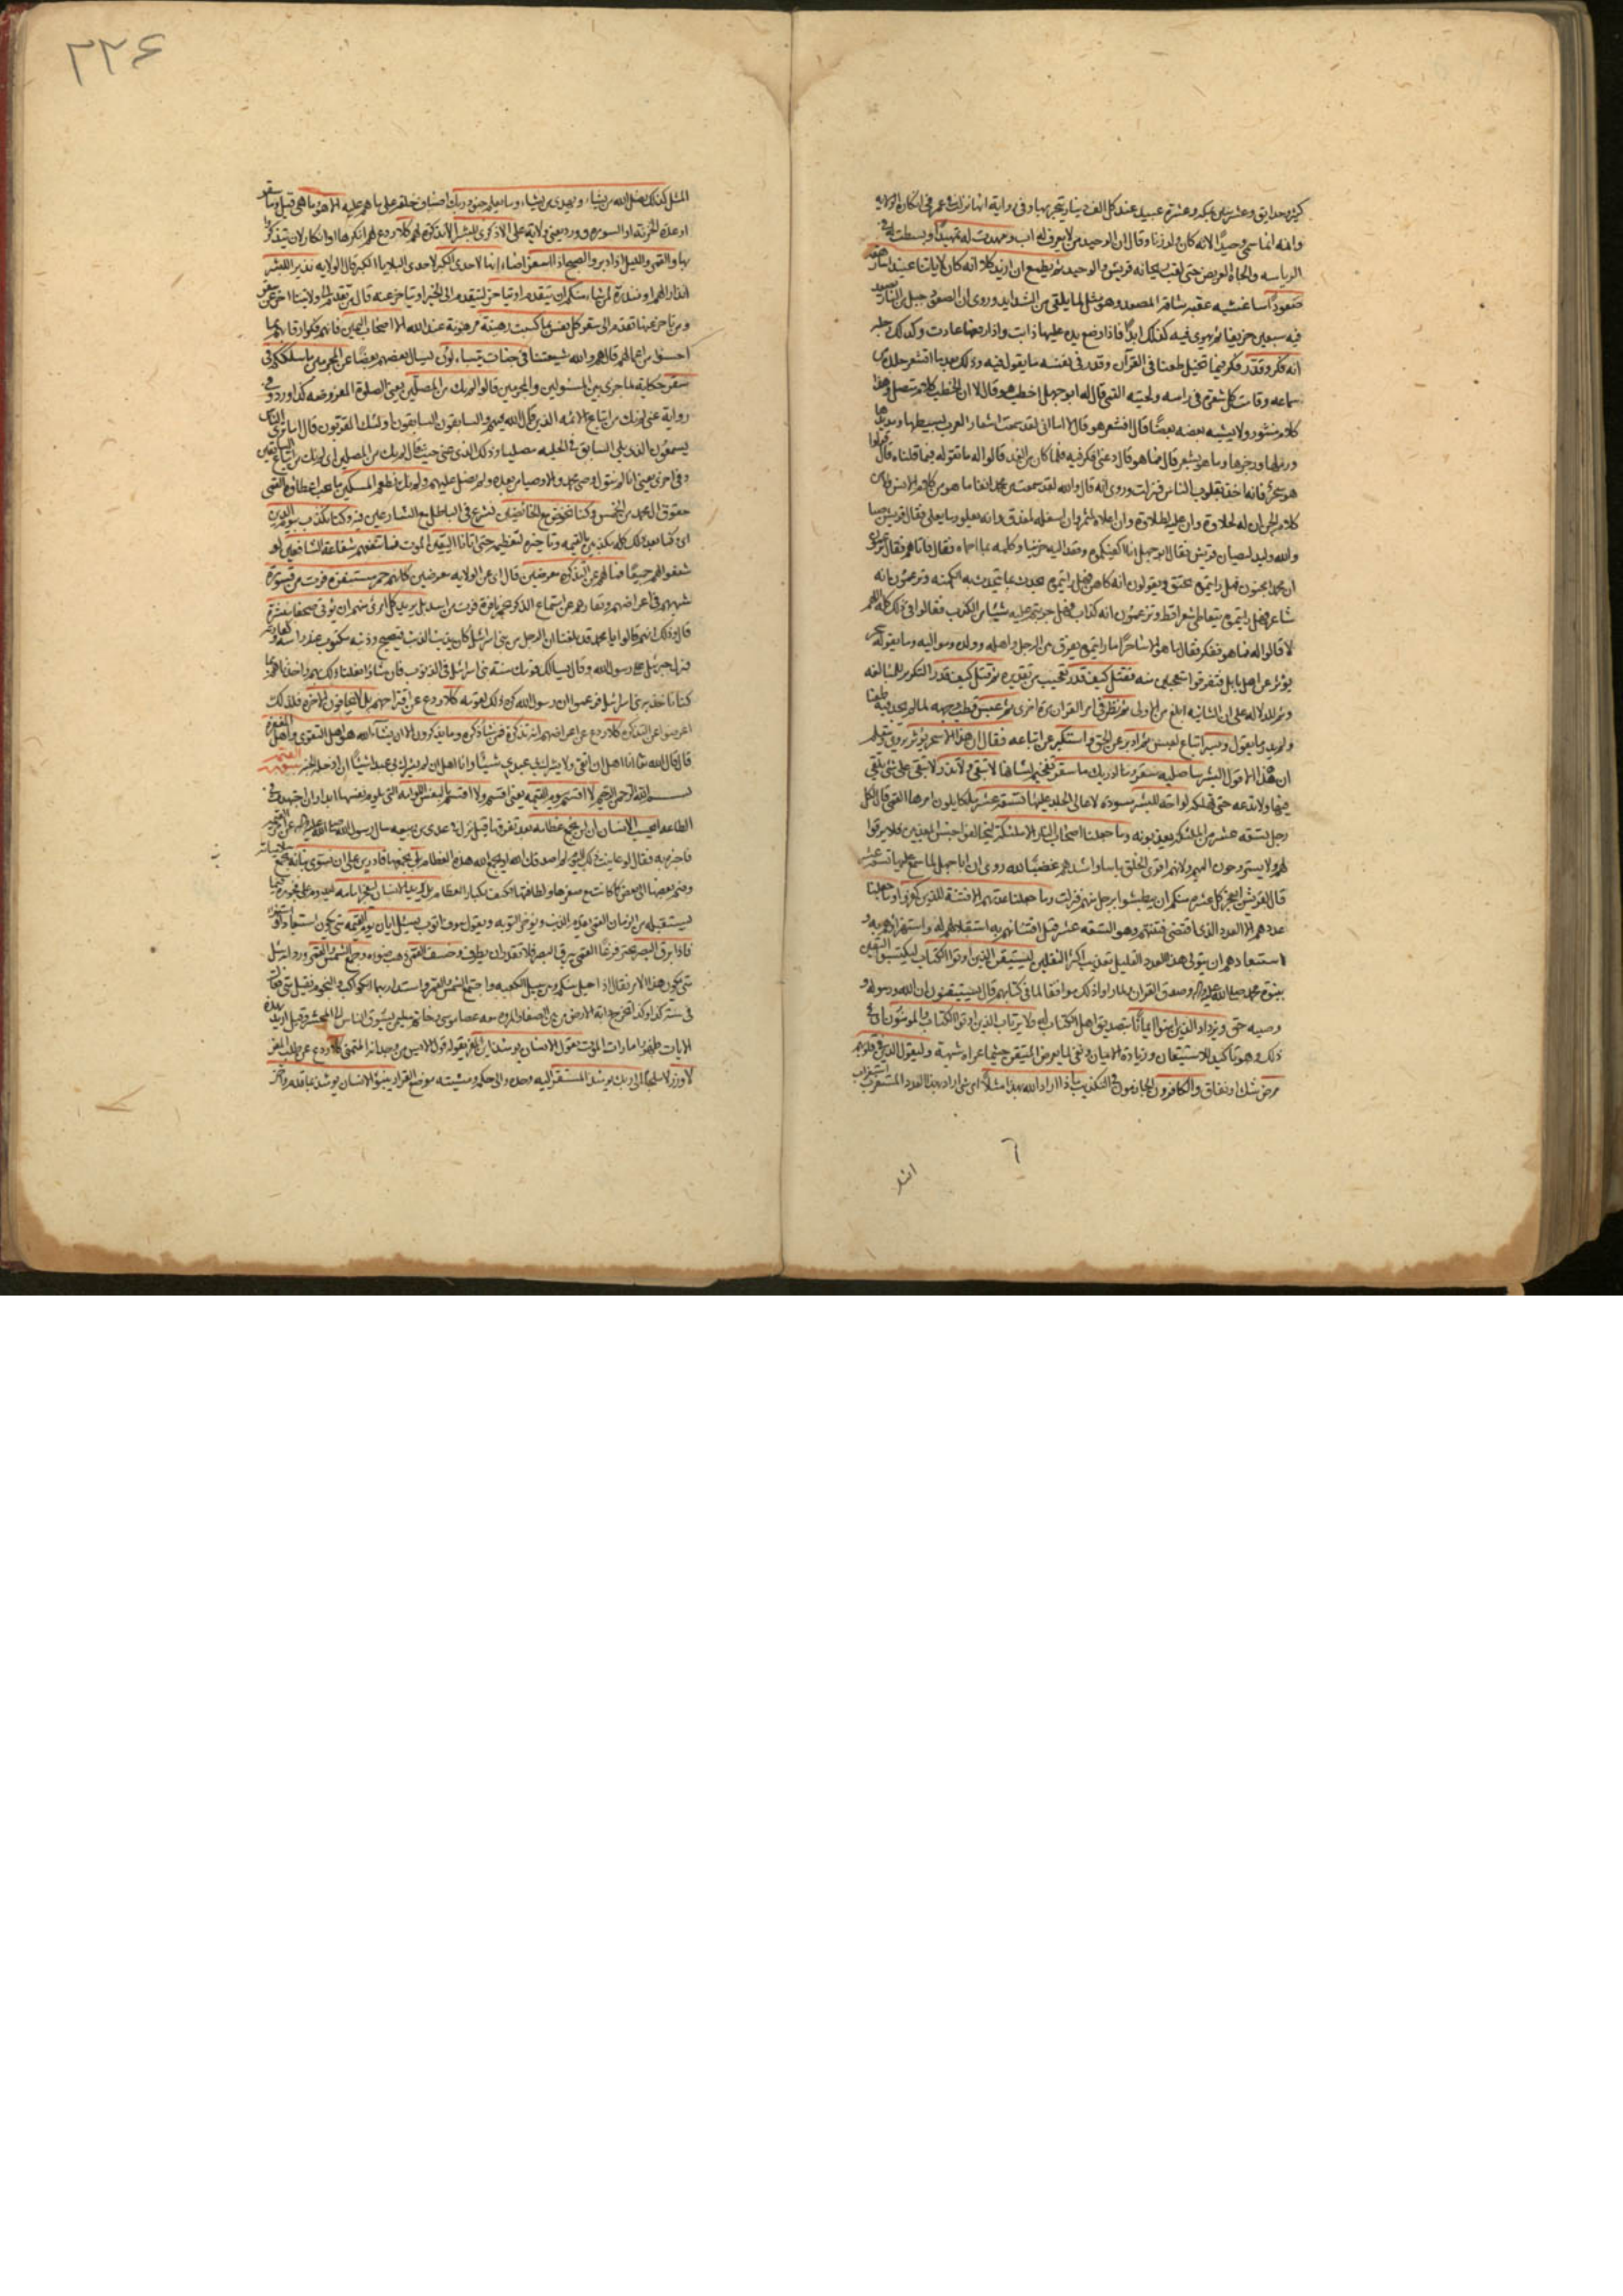 كثيرة حدايق وعشرين بمكة وعشرة عبيد عند كل الف دينار يتجر بها وفي رواية انها نزلت في عمر في انكاره الولاية
وانه انما سمي وحيدا لانه كان ولد زنا وقال ان الوحيد من لا يعرف له اب ومهدت له تمهيدا وبسطت له في
الرياسة والجاه العريض حتى لقب ريحانة قريش والوحيد ثم يطمع ان ازيد كلا انه كان لاياتنا عنيدا سارهقه
صعودا ساغشيه عقبة شاقة المصعد وهو مثل لما يلقى من الشدايد وروى ان الصعود جبل من النار يصعد
فيه سبعين خريفا ثم يهوي فيه كذلك ابدا فاذا وضع يده عليها ذابت واذا رفعها عادت وكذلك رجله
انه فكر وقدر فكر فيما تخيل طعنا في القرآن وقدر في نفسه ما يقول فيه وذلك بعد ما اقشعر جلده من
سماعه وقامت كل شعرة في راسه ولحيته القمي قال له ابو جهل اخطب هو قال لا ان الخطب كلام متصل وهذا
كلام منثور ولا يشبه بعضه بعضا قال افشعر هو قال لا اما اني لقد سمعت اشعار العرب بسيطها ومديدها
ورملها ورجزها وما هو بشعر قال فما هو قال دعني افكر فيه فلما كان من الغد قالوا له ما تقول فيما قلناه قال قولوا
هو سحر فانه اخذ بقلوب الناس فنزلت وروى انه قال والله لقد سمعت من محمد انفا ما هو من كلام الانس ولا من
كلام الجن ان له لحلاوة وان عليه لطلاوة وان اعلاه لمثمر وان اسفله لمغدق وانه يعلو وما يعلى فقال قريش صبا
والله وليد ليصبان قريش فقال ابو جهل انا اكفيكموه وقعد اليه حزينا وكلمه بما احماه فقال فاتاهم فقال تزعمون
ان محمدا مجنون فهل رايتموه يخنق ويقولون انه كاهن فهل رايتموه يحدث بما يتحدث به الكهنة وتزعمون انه
شاعر فهل رايتموه يتعاطى شعرا قط وتزعمون انه كذاب فهل جربتم عليه شيئا من الكذب فقالوا في ذلك كله اللهم
لا قالوا له فما هو ففكر فقال ما هو الا ساحر اما رايتموه يفرق بين الرجل واهله وولده ومواليه وما يقوله سحر
يؤثر عن اهل بابل فتفرقوا متعجبين منه فقتل كيف قدر تعجيب من تقديره ثم قتل كيف قدر التكرير للمبالغة
وثم للدلالة على ان الثانية ابلغ من الاولى ثم نظر في امر القرآن مرة اخرى ثم عبس قطب وجهه لما لم يجد فيه طعنا
ولم يدر ما يقول وبسر اتباع لعبس ثم ادبر عن الحق واستكبر عن اتباعه فقال ان هذا الا سحر يؤثر يروى ويتعلم
ان هذا الا قول البشر ساصليه سقر وما ادريك ما سقر تفخيم لشانها لا تبقي ولا تذر لا تبقي على شيء يلقى
فيها ولا تدعه حتى تهلكه لواحة للبشر مسودة لاعالي الجلد عليها تسعة عشر ملكا يلون امرها القمي قال لكل
رجل تسعة عشر من الملائكة يعذبونه وما جعلنا اصحاب النار الا ملائكة ليخالفوا جنس المعذبين فلا يرقوا
لهم ولا يستروحون اليهم ولانهم اقوى الخلق باسا واشدهم غضبا لله روى ان ابا جهل لما سمع عليها تسعة عشر
قال لقريش ايعجز كل عشرة منكم ان يبطشوا برجل منهم فنزلت وما جعلنا عدتهم الا فتنة للذين كفروا وما جعلنا
عددهم الا العدد الذي اقتضى فتنتهم وهو التسعة عشر قيل افتتانهم به استقلالهم له واستهزاؤهم به و
استبعادهم ان يتولى هذا العدد القليل تعذيب اكثر الثقلين ليستيقن الذين اوتوا الكتاب ليكتسبوا اليقين
بنبوة محمد صلى الله عليه واله وصدق القرآن لما راوا ذلك موافقا لما في كتابهم قال يستيقنون ان الله ورسوله و
وصيه حق ويزداد الذين امنوا ايمانا بتصديق اهل الكتاب له ولا يرتاب الذين اوتوا الكتاب والمؤمنون اي في
ذلك وهو تاكيد للاستيقان وزيادة الايمان ونفي لما يعرض المتيقن حيثما عراه شبهة وليقول الذين في قلوبهم
مرض شك او نفاق والكافرون الجازمون في التكذيب ماذا اراد الله بهذا مثلا اي شيء اراد بهذا العدد المستغرب استغراب
المثل
٢٢٤
المثل كذلك يضل الله من يشاء ويهدي من يشاء وما يعلم جنود ربك اصناف خلقه على ما هم عليه الا هو وما هي قيل وما سقر
او عدة الخزنة او السورة وورد يعني ولاية علي الا ذكرى للبشر الا تذكرة لهم كلا ردع لمن انكرها او انكار لان يتذكروا
بها والقمر والليل اذ ادبر والصبح اذا اسفر اضاء انها لاحدى الكبر لاحدى البلايا الكبر قال الولاية نذيرا للبشر
انذارا لهم او منذرة لمن شاء منكم ان يتقدم او يتاخر ليتقدم الى الخير او يتاخر عنه قال من تقدم الى ولايتنا اخر عن سقر
ومن تاخر عنها تقدم الى سقر كل نفس بما كسبت رهينة مرهونة عند الله الا اصحاب اليمين فانهم فكوا رقابهم بما
احسنوا من اعمالهم قال هم والله شيعتنا في جنات يتساءلون يسال بعضهم بعضا عن المجرمين ما سلككم في
سقر حكاية لما جرى بين المسئولين والمجرمين قالوا لم نك من المصلين يعني الصلوة المفروضة كذا ورد وفي
رواية عنى لم نك من اتباع الائمة الذين قال الله فيهم والسابقون السابقون اولئك المقربون قال اما ترى الناس
يسمون الذي يلي السابق في الحلبة مصليا وذلك الذي عنى حيث قال لم نك من المصلين اي لم نك من اتباع السابقين
وفي اخرى يعني انا لم نتول وصي محمد والاوصياء من بعده ولم نصل عليهم ولم نك نطعم المسكين ما يجب اعطاؤه القمي
حقوق ال محمد من الخمس وكنا نخوض مع الخائضين نشرع في الباطل مع الشارعين فيه وكنا نكذب بيوم الدين
اي وكنا بعد ذلك كله مكذبين بالقيمة وتاخيره لتعظيمه حتى اتانا اليقين الموت فما تنفعهم شفاعة الشافعين لو
شفعوا لهم جميعا فما لهم عن التذكرة معرضين قال اي عن الولاية معرضين كانهم حمر مستنفرة فرت من قسورة
شبههم في اعراضهم ونفارهم عن استماع الذكر بحمر نافرة فرت من اسد بل يريد كل امرئ منهم ان يؤتى صحفا منشرة
قال وذلك انهم قالوا يا محمد قد بلغنا ان الرجل من بني اسرائيل كان يذنب الذنب فيصبح وذنبه مكتوب عند راسه وكفارته
فنزل جبرئيل على رسول الله وقال يسالك قومك سنة بني اسرائيل في الذنوب فان شاؤا فعلنا ذلك بهم واخذناهم بما
كنا ناخذ به بني اسرائيل فزعموا ان رسول الله كره ذلك لقومه كلا ردع عن اقتراحهم بل لا يخافون الاخرة فلذلك
اعرضوا عن التذكرة كلا ردع عن اعراضهم انه تذكرة فمن شاء ذكره وما يذكرون الا ان يشاء الله هو اهل التقوى واهل المغفرة
قال قال الله تعالى انا اهل ان اتقى ولا يشرك بي عبدي شيئا وانا اهل ان لم يشرك بي عبدي شيئا ان ادخله الجنة سورة القيمة
بسم الله الرحمن الرحيم لا اقسم بيوم القيمة يعني اقسم ولا اقسم بالنفس اللوامة التي تلوم نفسها ابدا وان اجتهدت في
الطاعة ايحسب الانسان ان لن نجمع عظامه بعد تفرقها قيل نزل في عدي بن ربيعة سال رسول الله صلى الله عليه واله عن امر القيمة
فاخبره به فقال لو عاينت ذلك اليوم لم اصدقك او يجمع الله هذه العظام بلى نجمعها قادرين على ان نسوي بنانه بجمع سلامياته
وضم بعضها الى بعض كما كانت مع صغرها ولطافتها فكيف بكبار العظام بل يريد الانسان ليفجر امامه ليدوم على فجوره فيما
يستقبله من الزمان القمي يقدم الذنب ويؤخر التوبة ويقول سوف اتوب يسئل ايان يوم القيمة متى يكون استبعادا او استهزاء
فاذا برق البصر تحير فزعا القمي يبرق البصر فلا يقدر ان يطرف وخسف القمر ذهب ضوءه وجمع الشمس والقمر ورد انه سئل
متى يكون هذا الامر فقال اذا حيل بينكم وبين سبيل الكعبة واجتمع الشمس والقمر واستدار بهما الكواكب والنجوم فقيل متى فقال
في سنة كذا وكذا تخرج دابة الارض من بين الصفا والمروة معه عصا موسى وخاتم سليمن يسوق الناس الى المحشر وقيل اريد بهذه
الايات ظهور امارات الموت يقول الانسان يومئذ اين المفر يقوله قول الايس من وجدانه المتمنى كلا ردع عن طلب المفر
لا وزر لا ملجا الى ربك يومئذ المستقر اليه وحده والى حكمه ومشيته موضع القرار ينبؤ الانسان يومئذ بما قدم واخر